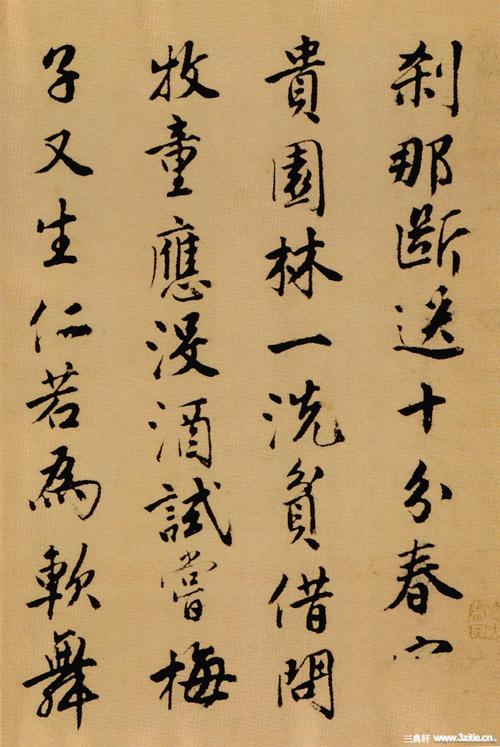 刹那斷送十分春
貴園林一洗貧借問
牧童應沒酒試嘗梅
子又生仁若為軟舞
三典轩 www.3zitie.cn